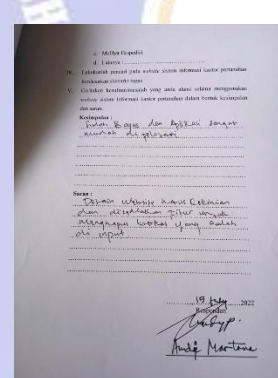 c. Melihat Ekspedisi
d. Lainnya :
IV. Lakukanlah pencarian pada website sistem informasi kantor pertanahan
berdasarkan skenario tugas
V. Ceritakan kesulitan/masalah yang anda alami selama menggunakan
website sistem informasi kantor pertanahan dalam bentuk kesimpulan
dan saran.
Kesimpulan :
Sudah Bagus dan Aplikasi sangat
mudah di
Saran :
Desain Website harus Kekinian
dan ditambahkan fitur untuk
menghapus berkas yang sudah
di input
19 July 2022
Responden